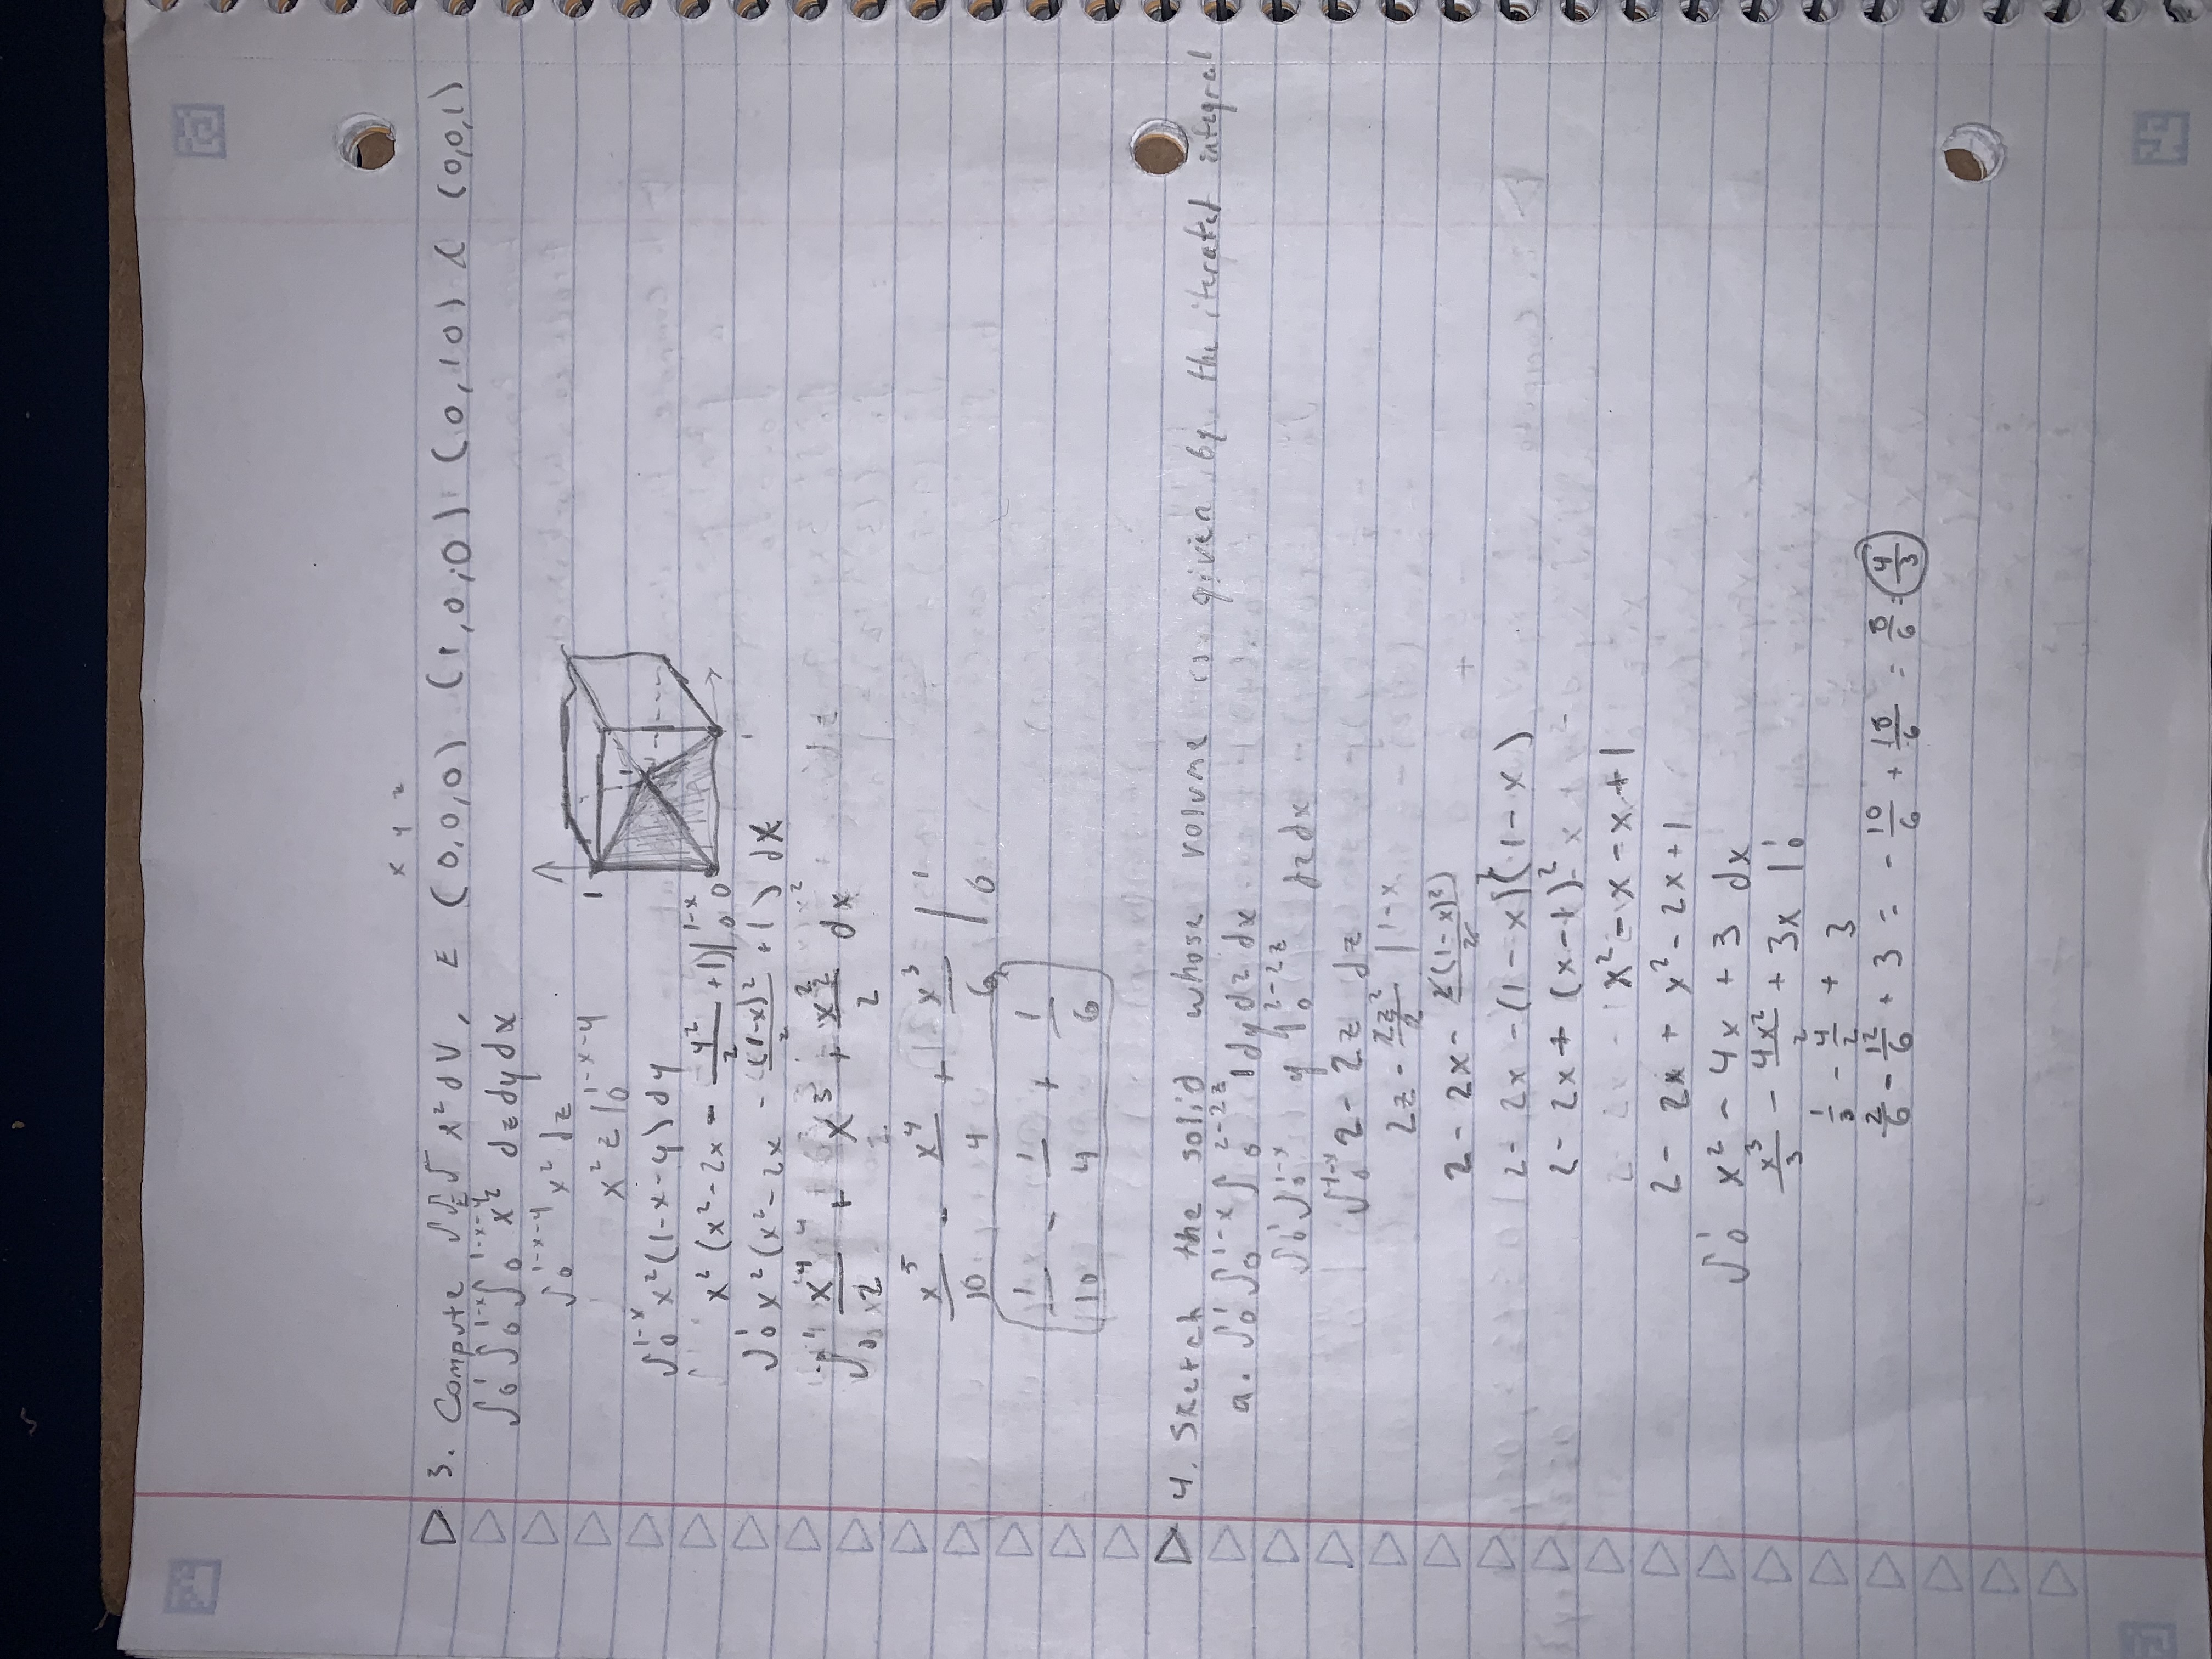 x y z
3. Compute ∫∫_E∫ x² dV, E (0,0,0) (1,0,0) (0,10) & (0,0,1)
∫₀¹ ∫₀^{1-x} ∫₀^{1-x-y} x² dz dy dx
∫₀^{1-x-y} x² dz
x² z |₀^{1-x-y}
1
∫₀^{1-x} x² (1-x-y) dy
x² (x² - 2x - y²/2 + 1) |₀^{1-x}
0
1
∫₀¹ x² (x² - 2x - (1-x)²/2 + 1) dx
∫₀¹ x⁴/2 + x³ + x²/2 dx
x⁵/10 - x⁴/4 + x³/6 |₀¹
1/10 - 1/4 + 1/6
4. Sketch the solid whose volume is given by the iterated integral
a. ∫₀¹ ∫₀^{1-x} ∫₀^{2-2z} 1 dy dz dx
∫₀¹ ∫₀^{1-x} y |₀^{2-2z} dz dx
∫₀^{1-x} 2 - 2z dz
2z - 2z²/2 |^{1-x}
2 - 2x - 2(1-x)²/2
2 - 2x - (1-x)(1-x)
2 - 2x + (x-1)²
x² - x - x + 1
2 - 2x + x² - 2x + 1
∫₀¹ x² - 4x + 3 dx
x³/3 - 4x²/2 + 3x |₀¹
1/3 - 4/2 + 3
2/6 - 12/6 + 3 = -10/6 + 18/6 = 8/6 = 4/3